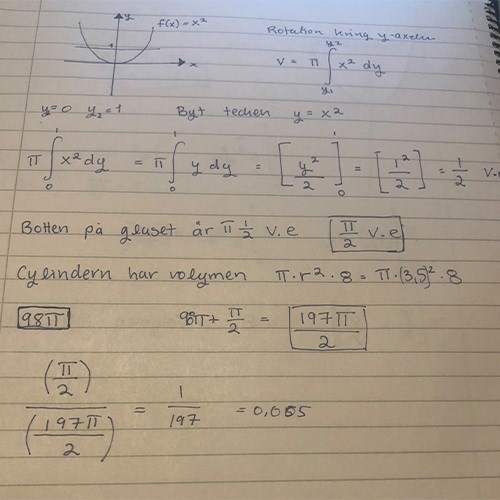 y
f(x) = x²
x
Rotation kring y-axeln
V = π ∫ x² dy
y₂
y₁
y=0 y₂=1 Byt tecken y = x²
π ∫₀¹ x² dy = π ∫₀¹ y dy = [y²/2]₀¹ = [1²/2] = 1/2 v.e
Botten på glaset är π 1/2 v.e π/2 v.e
Cylindern har volymen π·r²·8 = π·(3,5)²·8
98π 98π + π/2 = 197π/2
(π/2)/(197π/2) = 1/197 = 0,005